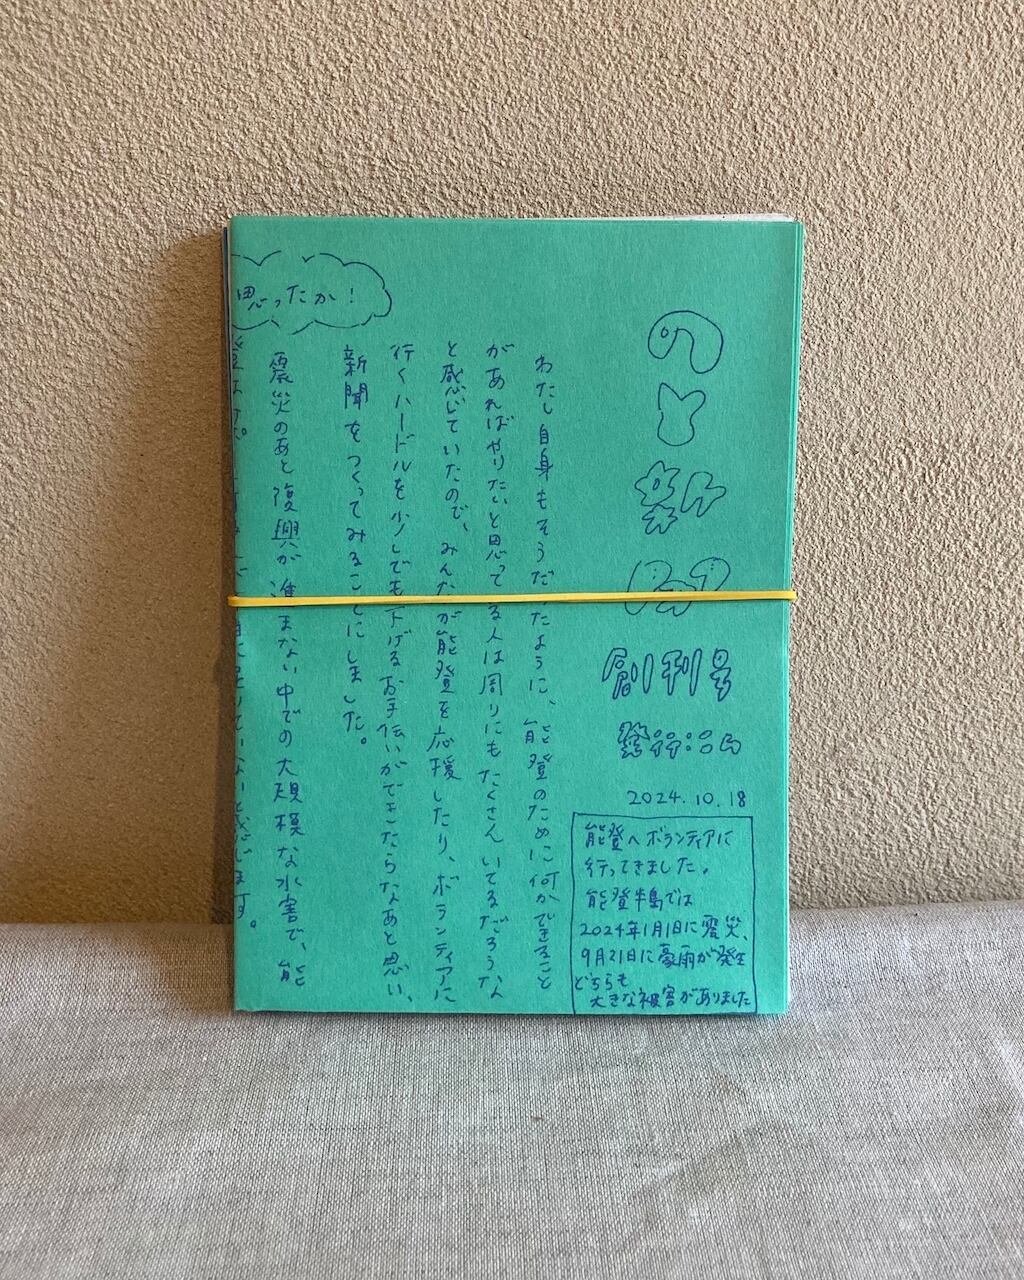 のと新聞
創刊号
2024.10.18
能登へボランティアに
行ってきました。
能登半島では
2024年1月1日に震災、
9月21日に豪雨が発生
どちらも
大きな被害がありました
わたし自身もそうだったように、能登のために何かできること
があればやりたいと思ってる人は周りにもたくさんいてるだろうな
と感じていたので、みんなが能登を応援したり、ボランティアに
行くハードルを少しでも下げるお手伝いができたらなあと思い、
新聞をつくってみることにしました。
思ったか!
震災のあと復興が進まない中での大規模な水害で、能